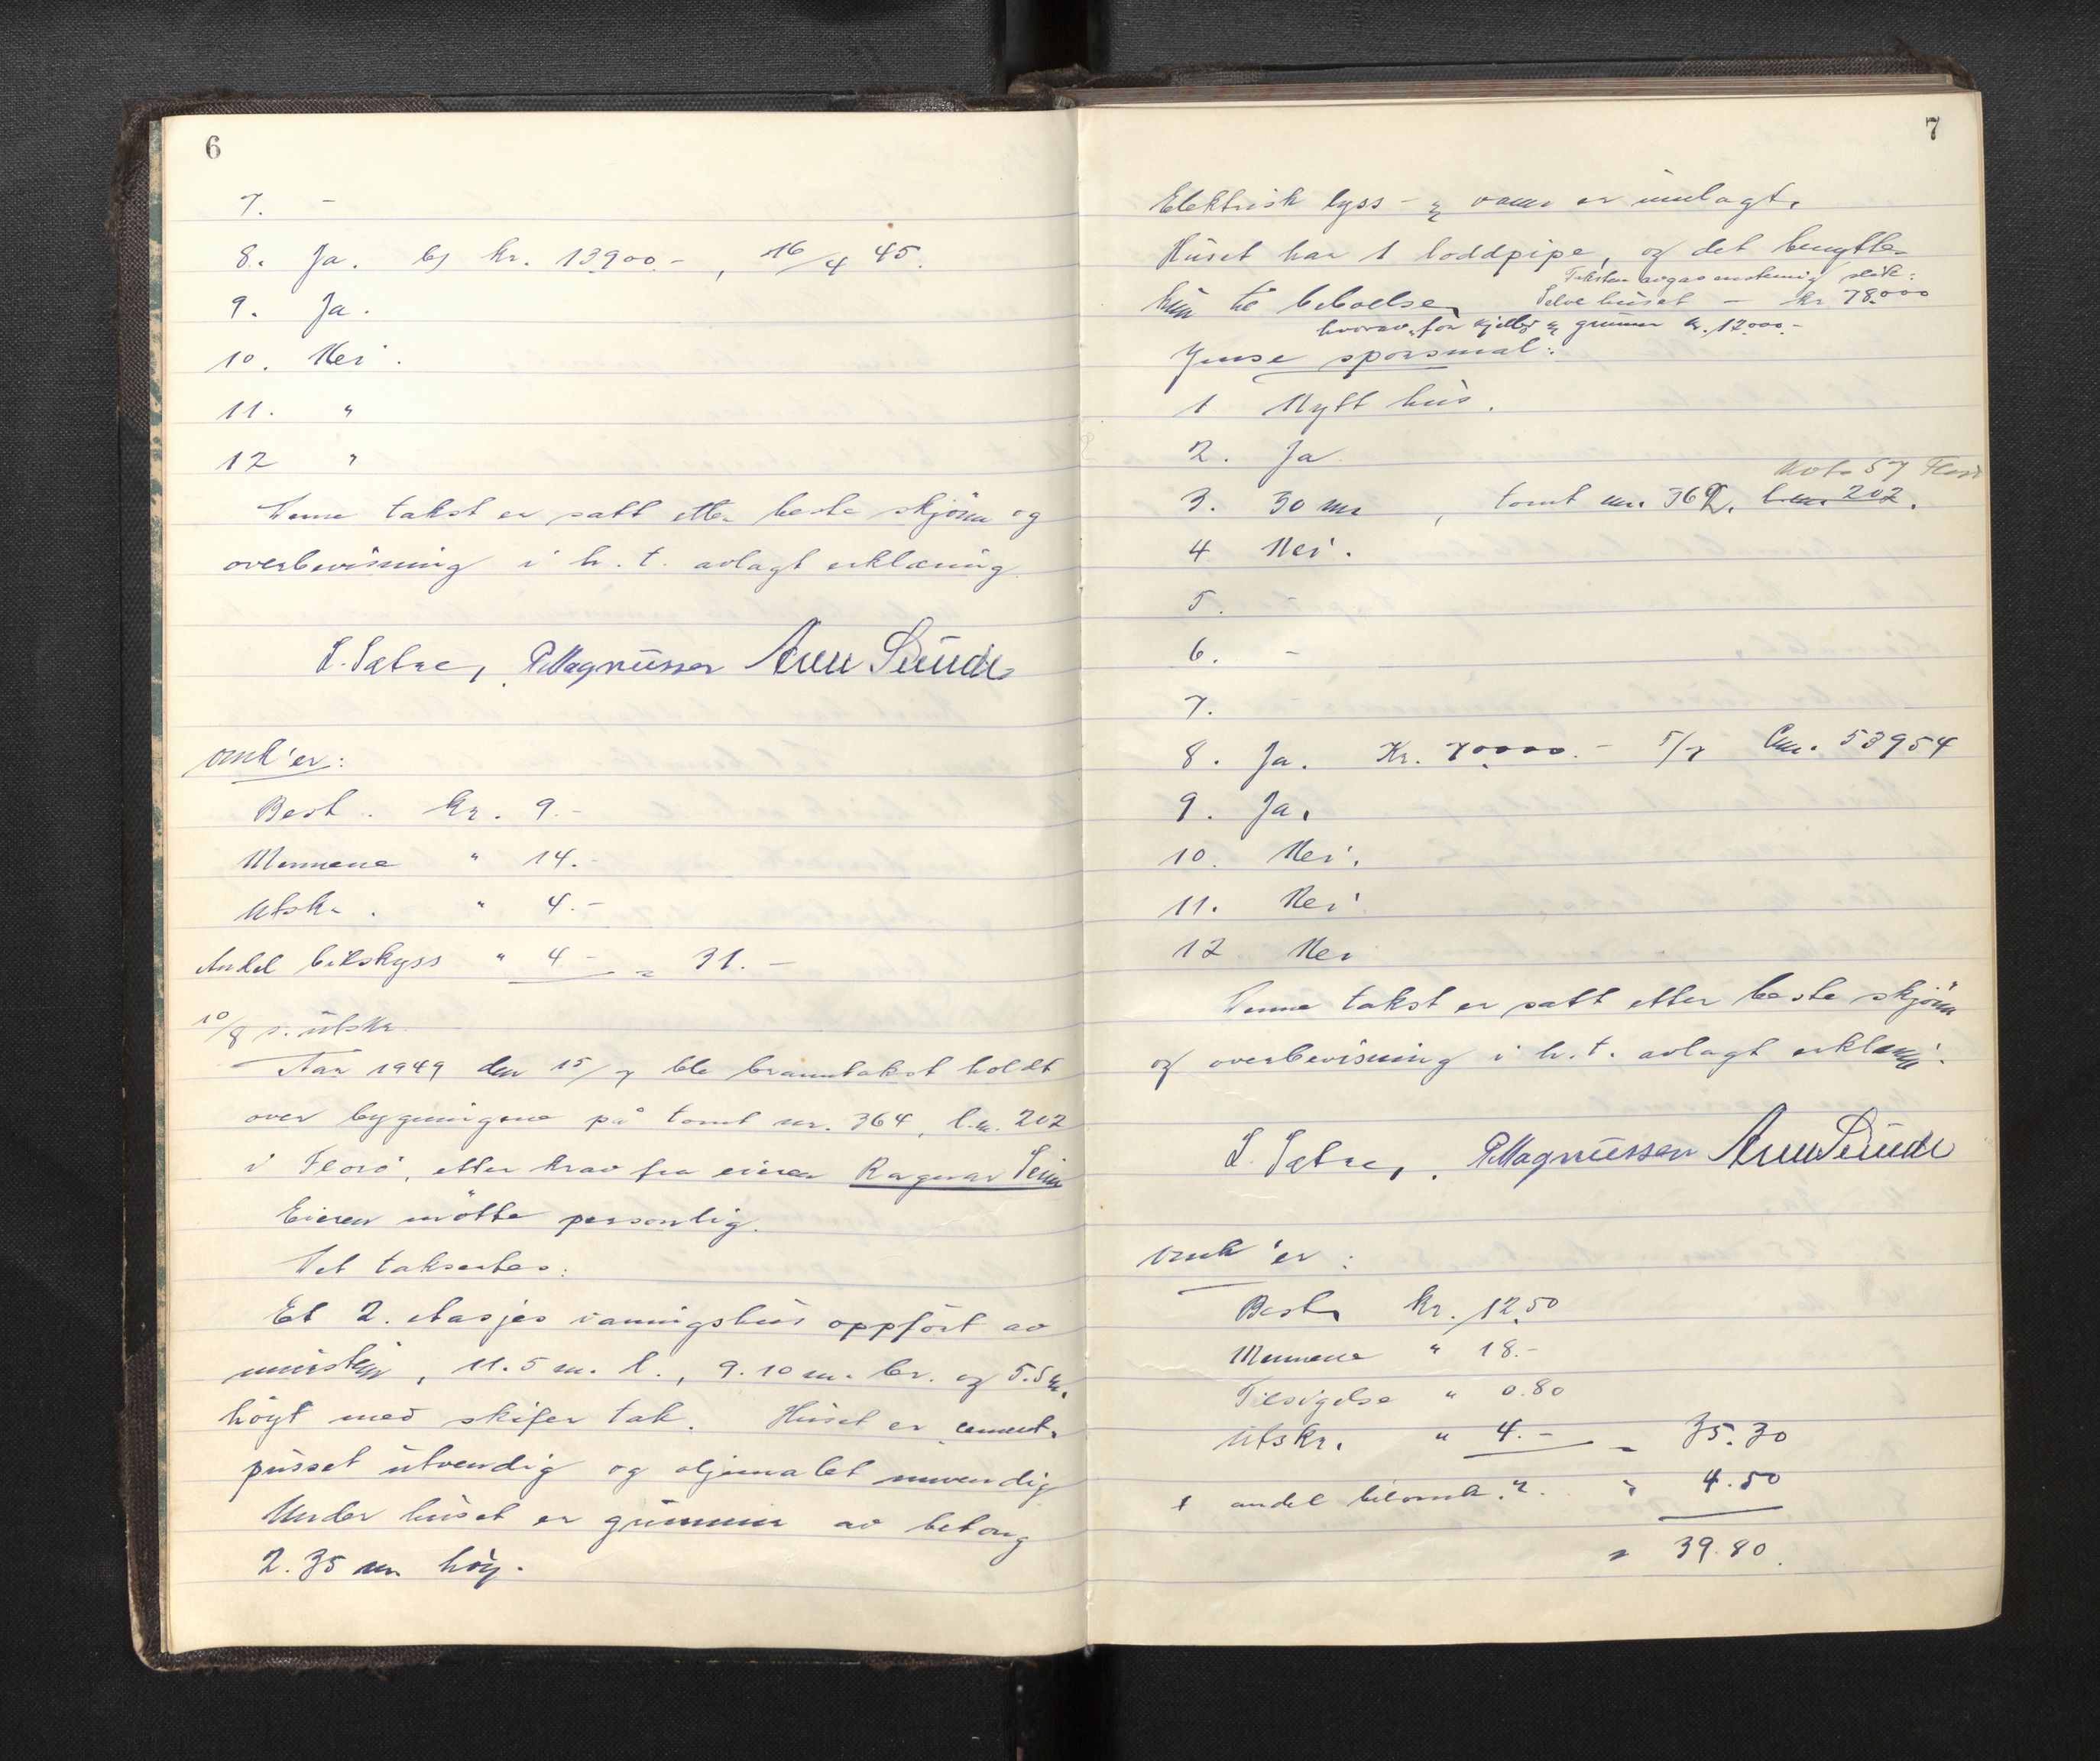 6
7. -
8. Ja. by kr. 13900.-, 16/4 45.
9. Ja.
10. Nei.
11. "
12 "
Denne takst er satt etter beste skjönn og
overbevisning i h. t. avlagt erklæring.
S. Sætre, P. Magnussen Arne Sunde
Omk'er:
Best. kr. 9.-
Mennene " 14.-
Utskr. " 4.-
Andel bilskyss " 4.- = 31.-
10/8 s. utskr.
Aar 1949 den 15/7 ble branntakst holdt
over bygningene på tomt nr. 364, l.nr. 202
i Florö, etter krav fra eieren Ragnar
Eieren mötte personlig.
Det taksertes:
Et 2. etasjes vaaningshus oppfört av
murstein, 11.5 m. l., 9.10 m. br. og 5.5 m.
höyt med skifer tak. Huset er cement-
pusset utvendig og oljemalet innvendig
Under huset er grunnmur av betong
2.35 m höy.
7
Elektrisk lys- og varme er innlagt.
Huset har 1 loddpipe, og det benyttes
Taksten avgas enstemig slik:
kun til beboelse. Selve huset - kr. 78.000
hvorav for kjeller og grunnm kr. 12000.-
Jense sporsmal:
1 Nytt hus.
2. Ja
Nots 57 Florö
3. 30 m, tomt nr. 362. l.nr. 202.
4 Nei.
5. -
6. -
7.
8. Ja. Kr. 70000.- 5/7 Lnr. 53954
9. Ja.
10. Nei.
11. Nei
12 Nei
Denne takst er satt etter beste skjönn
og overbevisning i h. t. avlagt erklæring.
S. Sætre, P. Magnussen Arne Sunde
Omk'er:
Best. kr. 12.50
Mennene " 18.-
Tilsigelse " 0.80
Utskr. " 4.- = 35.30
+ andel bilomk. " " 4.50
= 39.80.